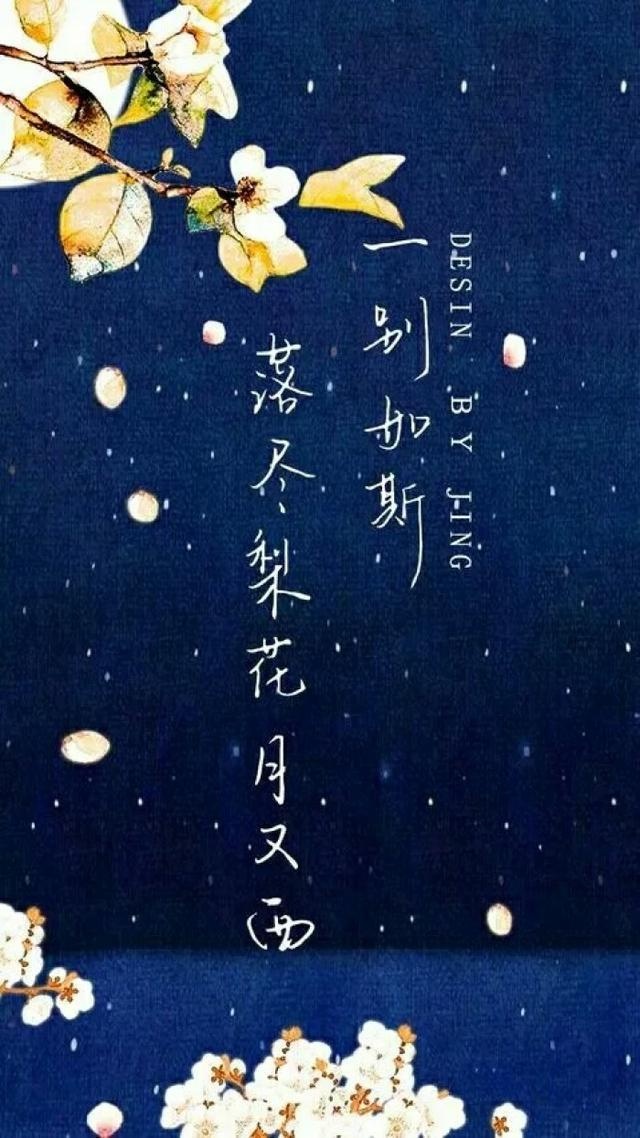 DESIN BY JING
一别如斯
落尽梨花月又西